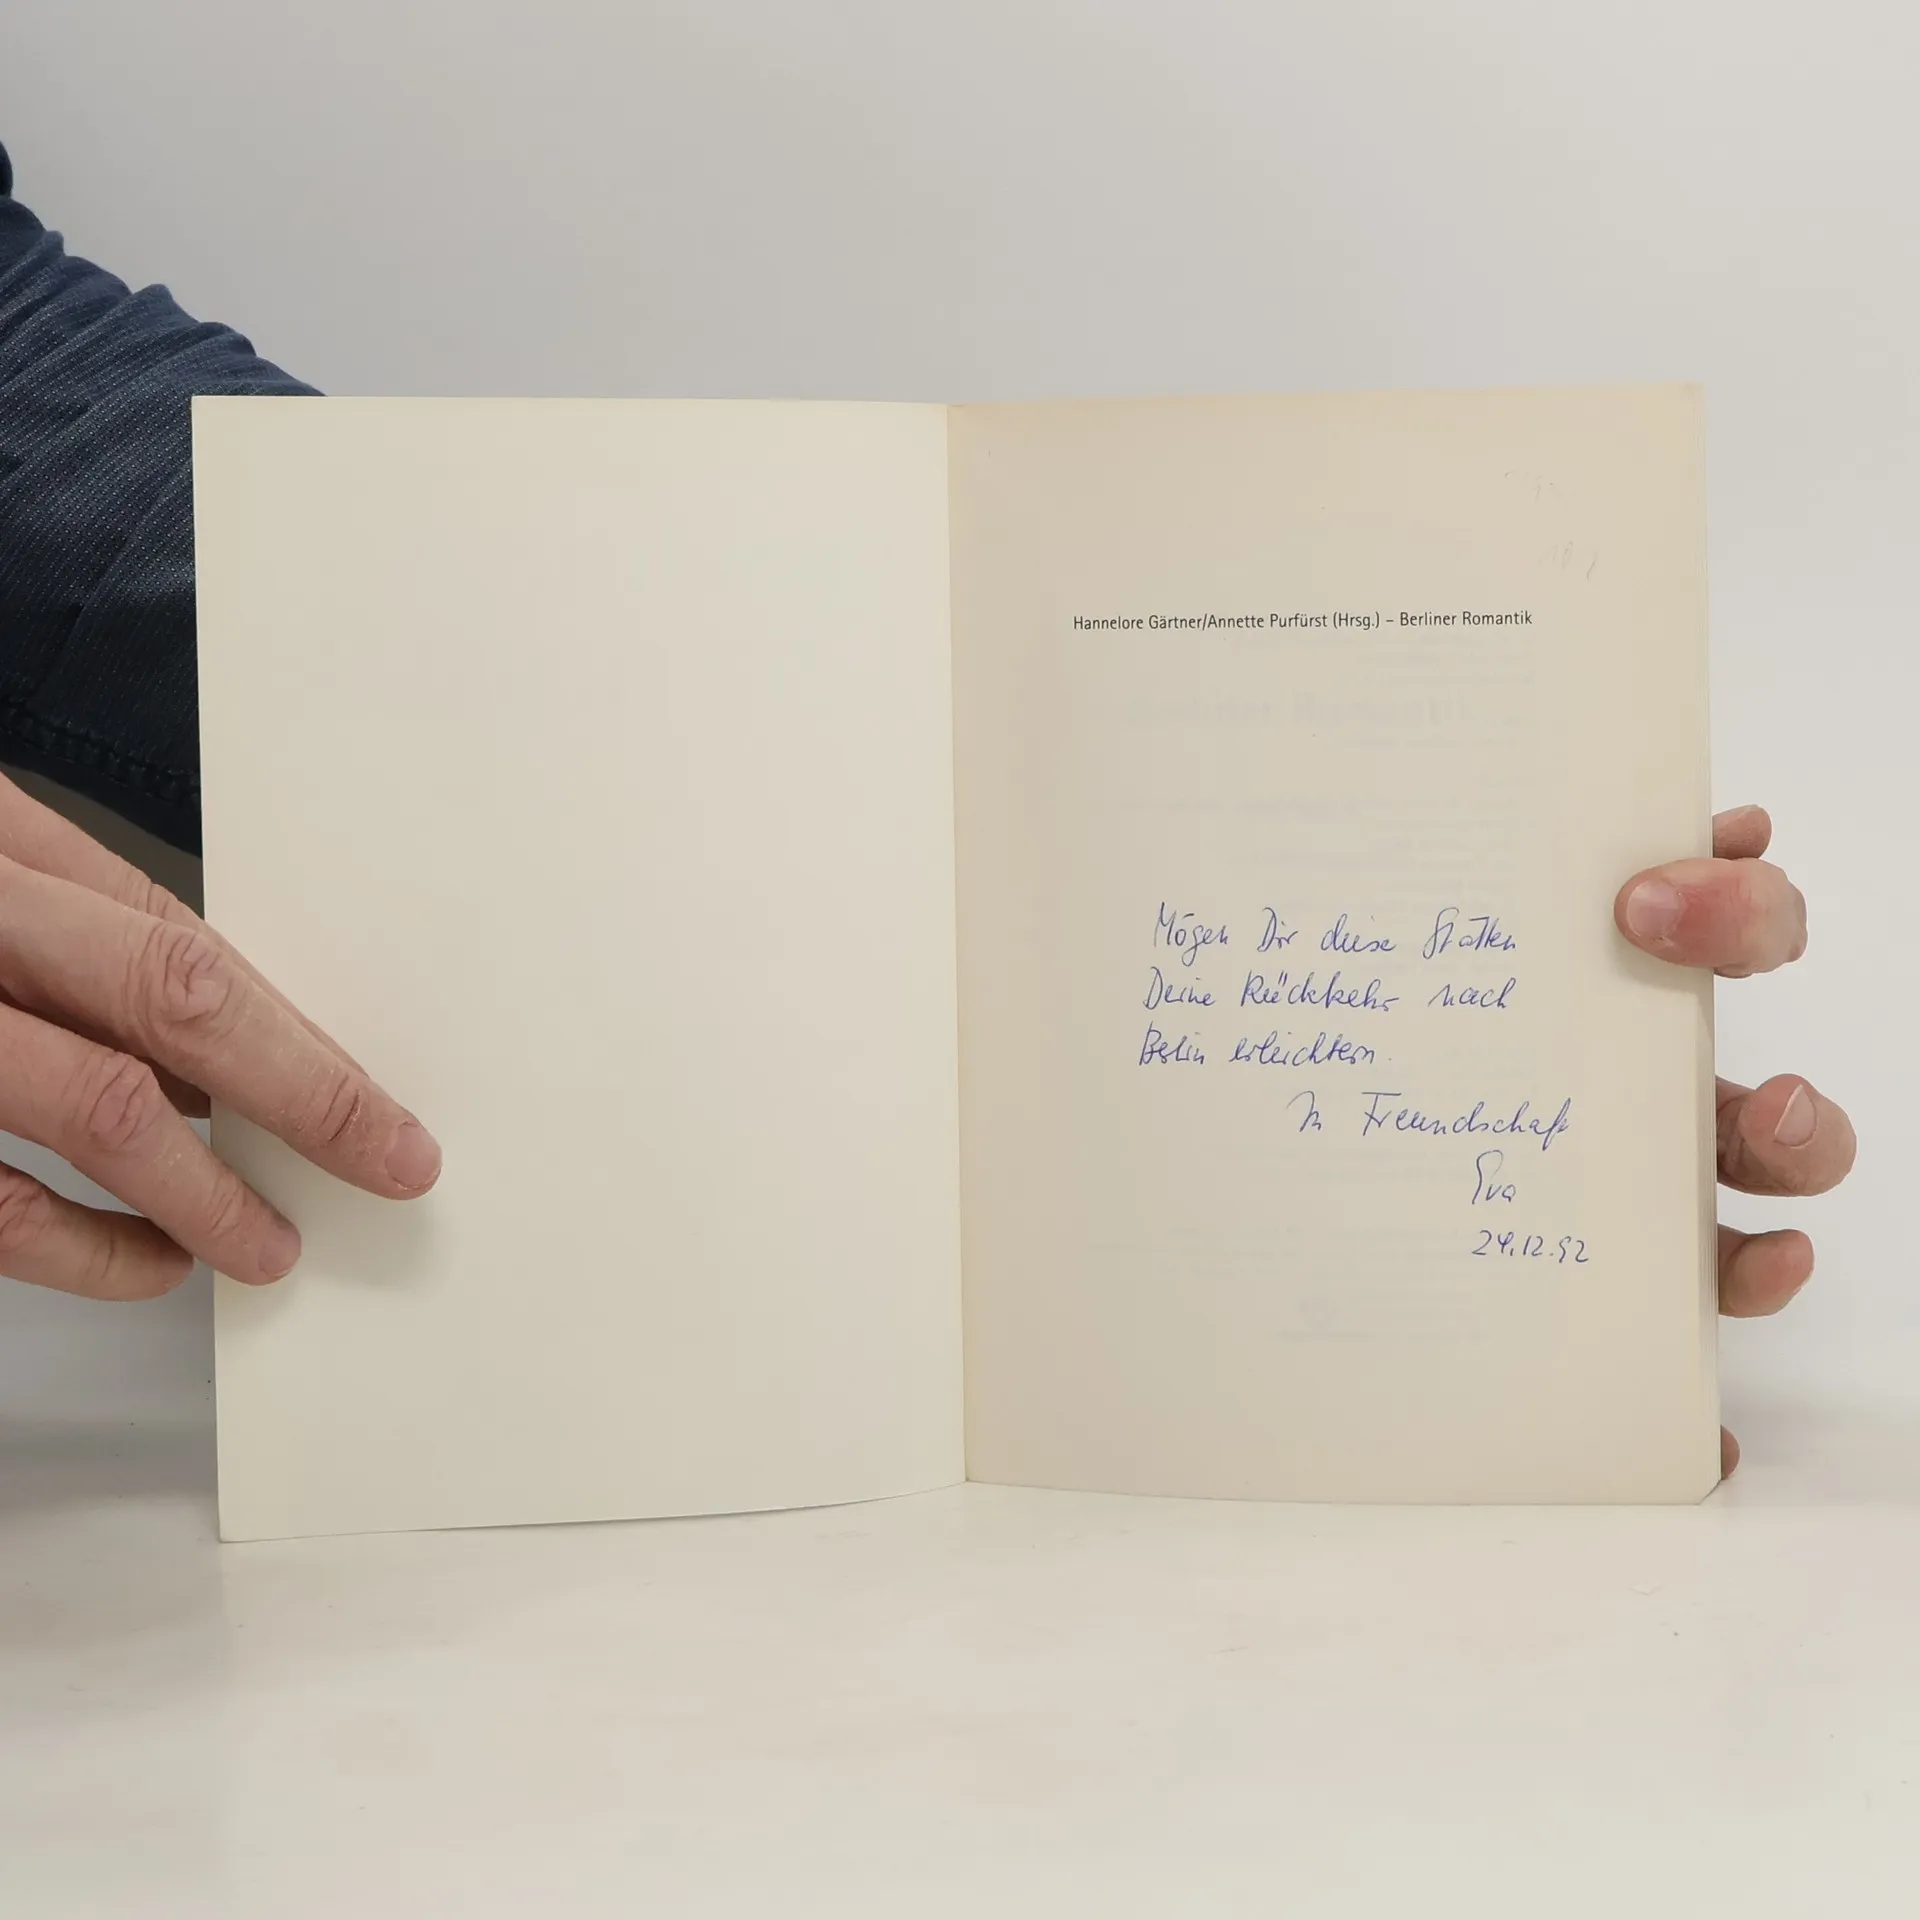 Hannelore Gärtner/Annette Purfürst (Hrsg.) – Berliner Romantik
Mögen Dir diese Stätten
Deine Rückkehr nach
Berlin erleichtern.
In Freundschaft
Eva
24.12.92